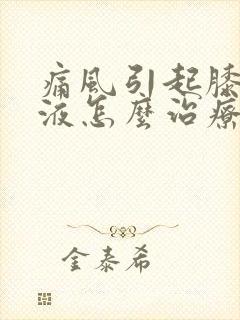 痛風引起膝
液怎麼治療
金泰希